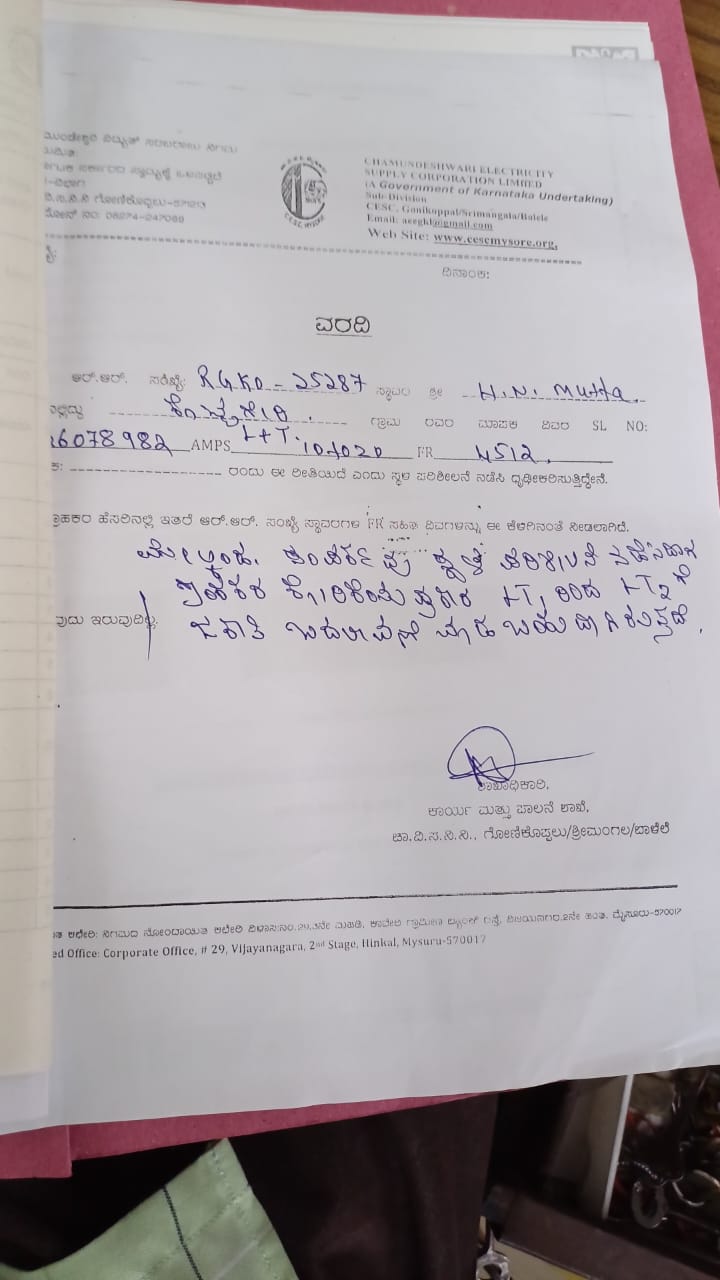 ವಿದ್ಯುತ್ ಸರಬರಾಜು ನಿಗಮ
CHAMUNDESHWARI ELECTRICITY
SUPPLY CORPORATION LIMITED
(A Government of Karnataka Undertaking)
Sub-Division
CESC, Gonikoppal/Srimangala/Balele
Email: aeegkl@gmail.com
Web Site: www.cescmysore.org,
ಗೋಣಿಕೊಪ್ಪಲು-571213
ಫೋನ್ ನಂ: 08274-247069
ದಿನಾಂಕ:
ವರದಿ
ಆರ್.ಆರ್. ಸಂಖ್ಯೆ: RGKO-25287 ಸ್ಥಾವರ ಶ್ರೀ H.N. Mutta.
ಗ್ರಾಮ ರವರ ಮಾಪಕ ವಿವರ SL NO:
6078982 AMPS L+T. FR 4512.
ರಂದು ಈ ರೀತಿಯಿದೆ ಎಂದು ಸ್ಥಳ ಪರಿಶೀಲನೆ ನಡೆಸಿ ಧೃಢೀಕರಿಸುತ್ತಿದ್ದೇನೆ.
ಹೆಸರಿನಲ್ಲಿ ಇತರೆ ಆರ್.ಆರ್. ಸಂಖ್ಯೆ ಸ್ಥಾವರಗಳ FR ಸಹಿತ ವಿವರಗಳನ್ನು ಈ ಕೆಳಗಿನಂತೆ ನೀಡಲಾಗಿದೆ.
ಮೇಲ್ಕಂಡ ಸಂಪರ್ಕವು ಸ್ಥಳ ಪರಿಶೀಲನೆ ನಡೆಸಲಾಗಿ
ಗ್ರಾಹಕರ ಕೋರಿಕೆಯ ಪ್ರಕಾರ LT1 ರಿಂದ LT2 ಗೆ
ಇರುವುದಿಲ್ಲ. ಜಕಾತಿ ಬದಲಾವಣೆ ಮಾಡಬಹುದಾಗಿರುತ್ತದೆ.
ಶಾಖಾಧಿಕಾರಿ,
ಕಾರ್ಯ ಮತ್ತು ಪಾಲನೆ ಶಾಖೆ,
ಚಾ.ವಿ.ಸ.ನಿ.ನಿ., ಗೋಣಿಕೊಪ್ಪಲು/ಶ್ರೀಮಂಗಲ/ಬಾಳೆಲೆ
ಕಛೇರಿ: ನಿಗಮದ ನೋಂದಾಯಿತ ಕಛೇರಿ ವಿಳಾಸ:ನಂ.29, ಕಾವೇರಿ ಗ್ರಾಮೀಣ ಬ್ಯಾಂಕ್ ರಸ್ತೆ, ವಿಜಯನಗರ.2ನೇ ಹಂತ, ಮೈಸೂರು-570017
ed Office: Corporate Office, # 29, Vijayanagara, 2nd Stage, Hinkal, Mysuru-570017